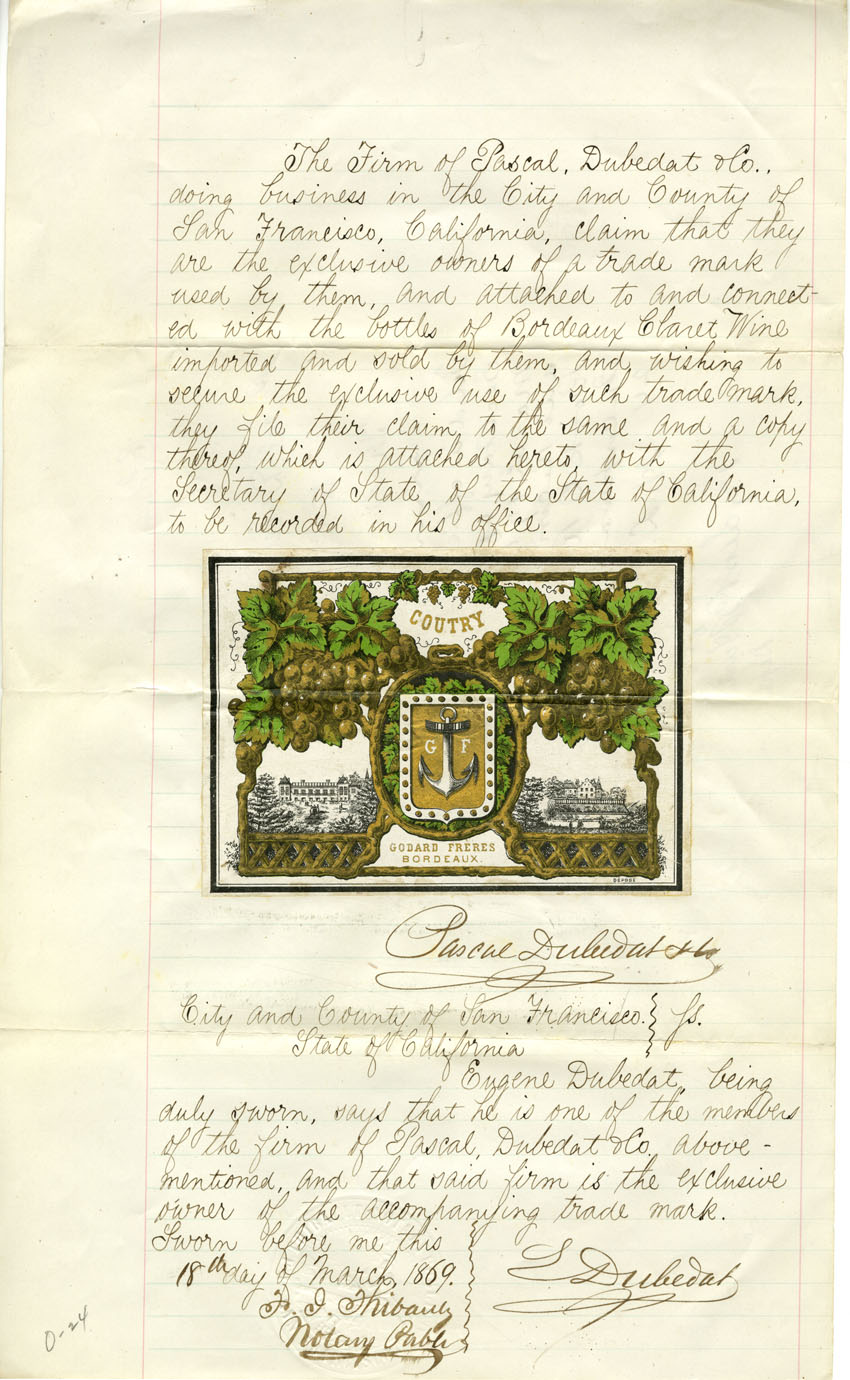 The Firm of Pascal, Dubedat & Co.,
doing business in the City and County of
San Francisco, California, claim that they
are the exclusive owners of a trade mark
used by them, and attached to and connect-
ed with the bottles of Bordeaux Claret Wine
imported and sold by them, and wishing to
secure the exclusive use of such trade mark,
they file their claim to the same and a copy
thereof, which is attached hereto, with the
Secretary of State of the State of California,
to be recorded in his office.
COUTRY
G F
GODARD FRERES
BORDEAUX.
DÉPOSÉ
Pascal Dubedat & Co
City and County of San Francisco. } Ss.
State of California
Eugene Dubedat, being
duly sworn, says that he is one of the members
of the firm of Pascal, Dubedat & Co, above-
mentioned, and that said firm is the exclusive
owner of the accompanying trade mark.
Sworn before me this
18th day of March, 1869.
E Dubedat
F. J. Thibault
Notary Public
0-24